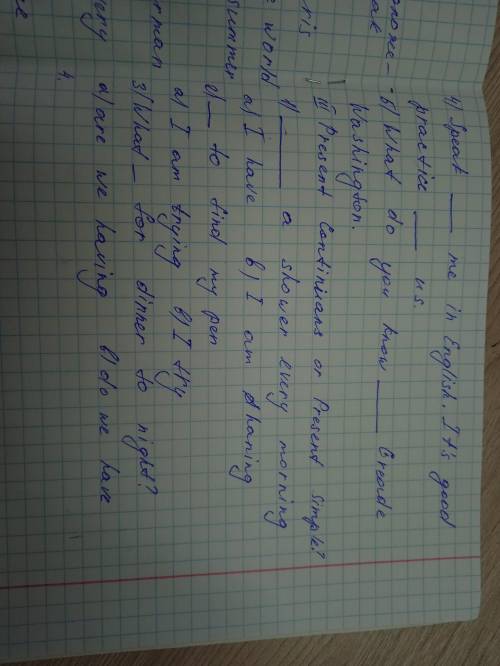 4) Speak ___ me in English. It's good
practice ___ us.
5) What do you know ___ Creade
Washington.
III Present Continians or Present Simple?
1) ___ a shower every morning
a) I have b) I am thaning
2) — to find my pen
a) I am trying b) I try
3) What — for dinner to night?
a) are we having b) do we have
4.
world
summer